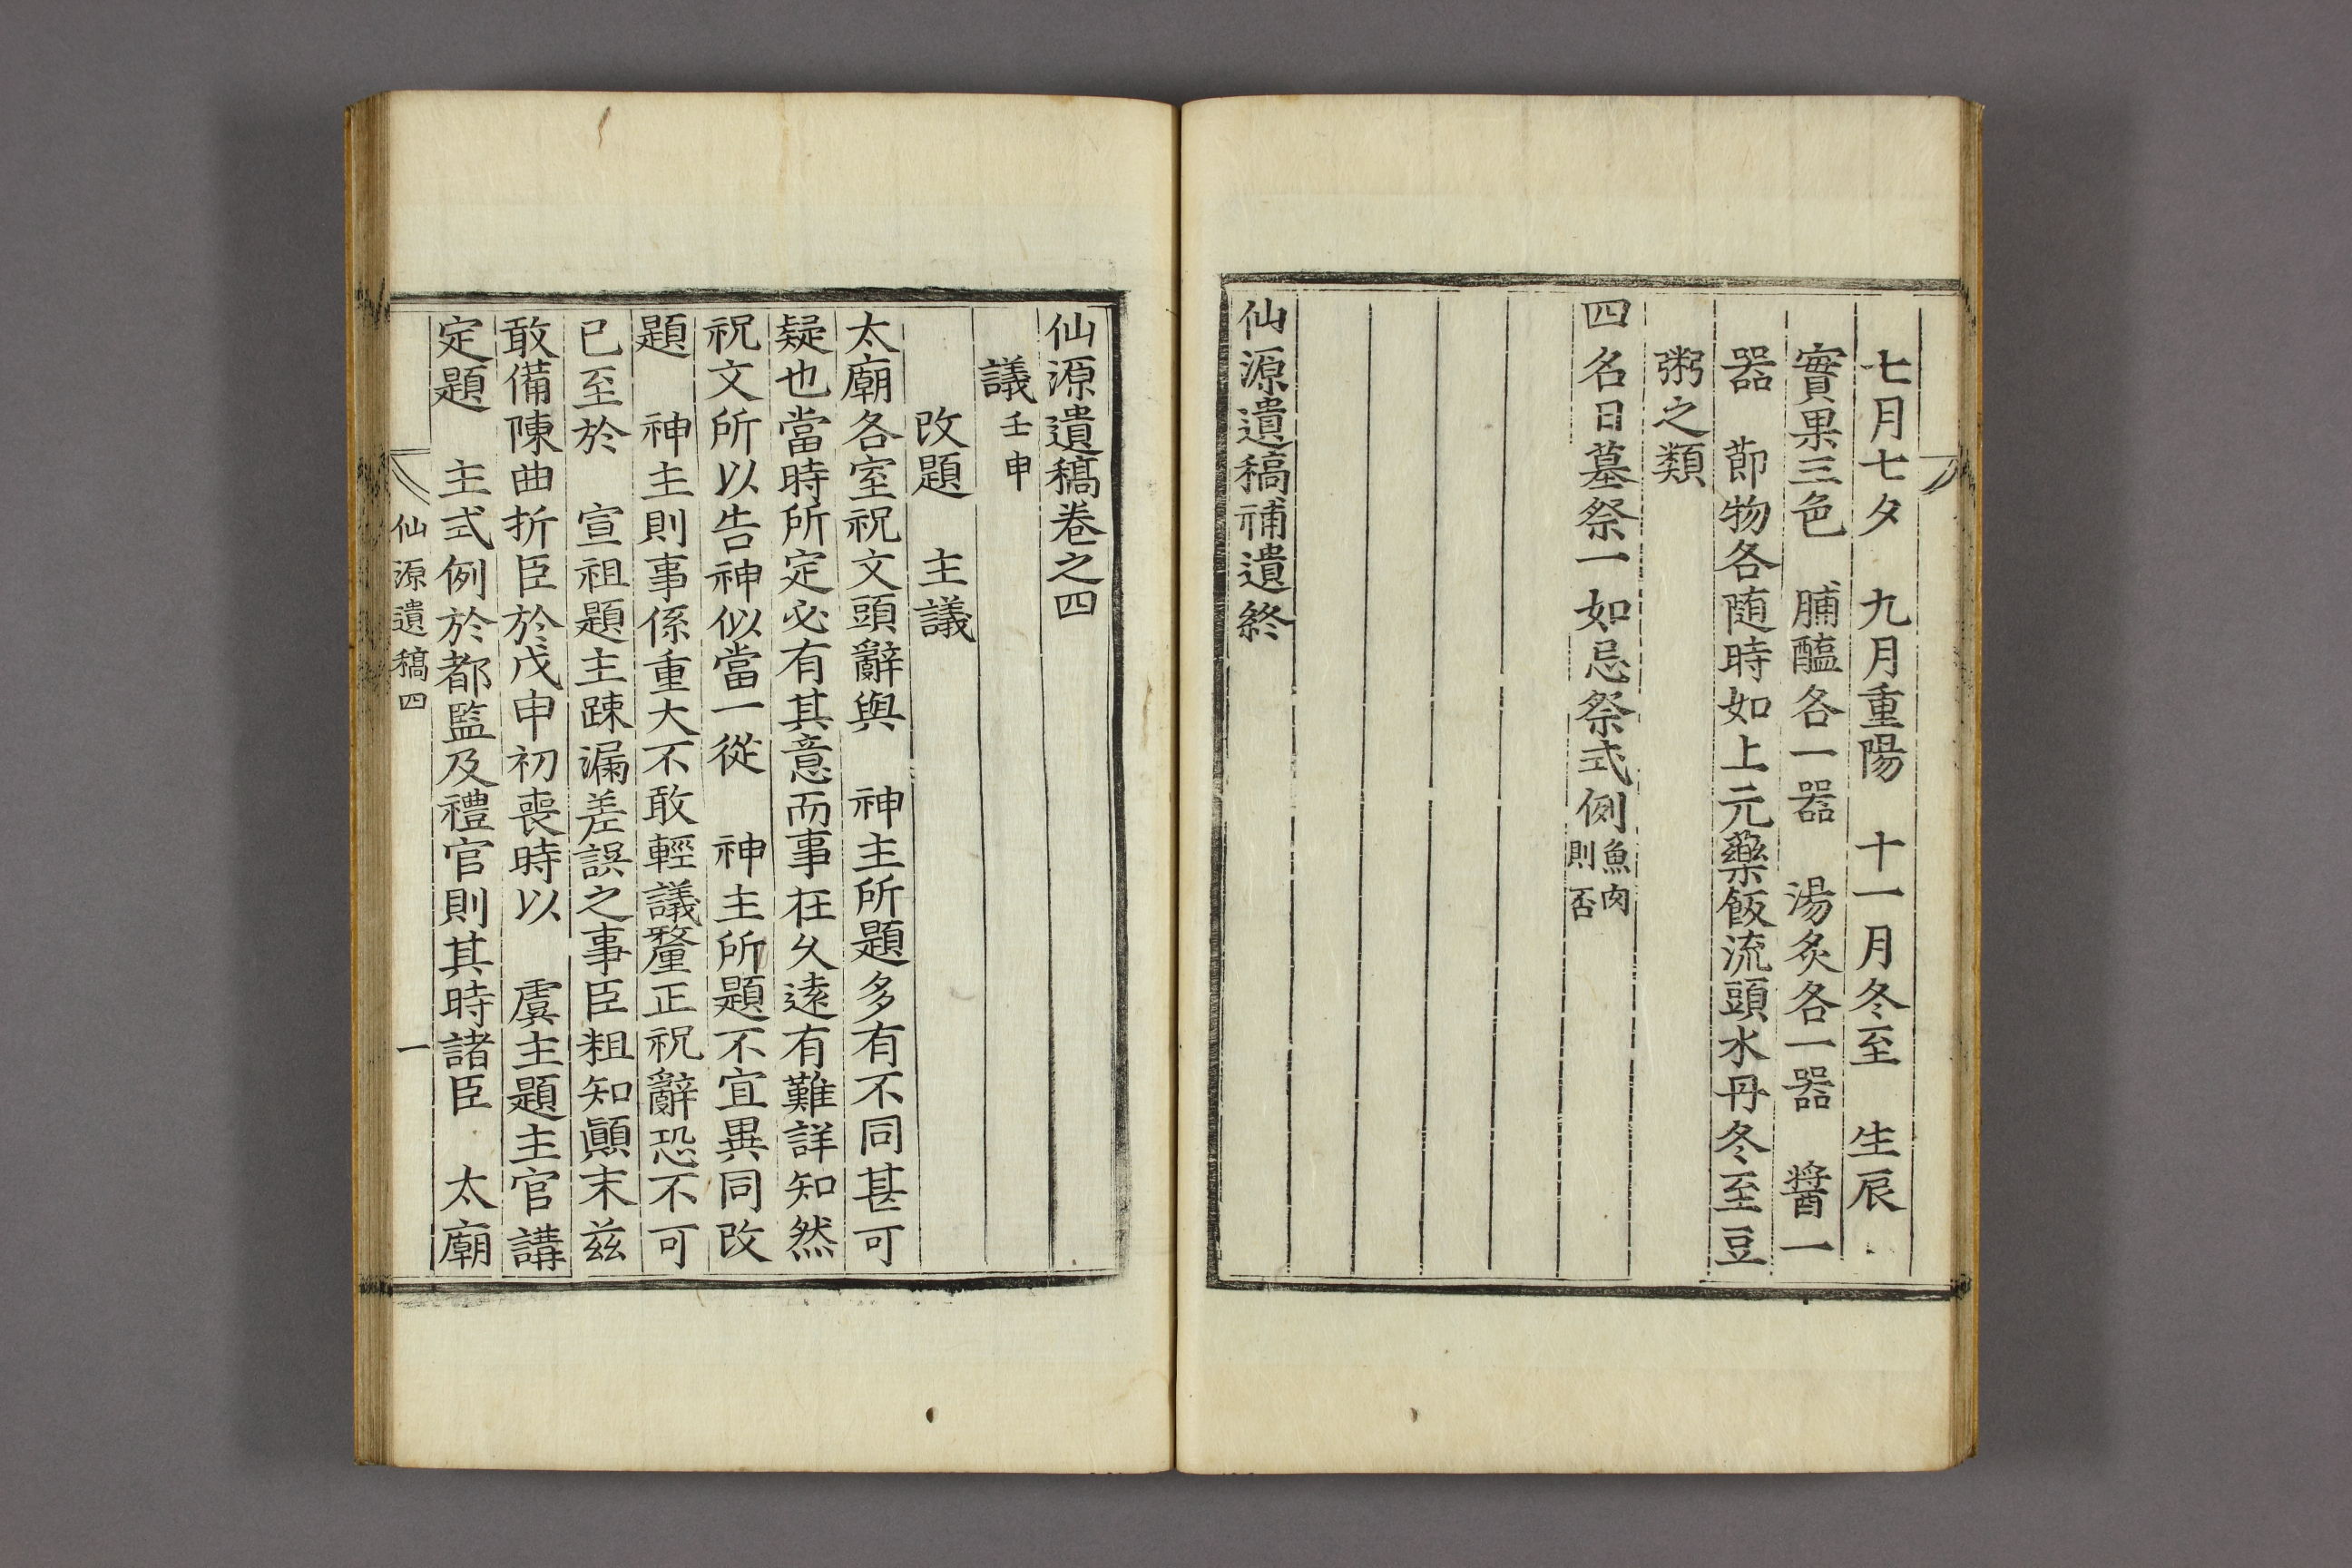 七月七夕　九月重陽　十一月冬至　生辰
實果三色　脯醢各一器　湯炙各一器　醬一
器　莭物各随時如上元藥飯流頭水丹冬至豆
粥之類
四名日墓祭一如忌祭式例魚肉
則否
仙源遺稿補遺終
仙源遺稿卷之四
議壬申
改題　主議
太廟各室祝文頭辭與　神主所題多有不同甚可
疑也當時所定必有其意而事在久遠有難詳知然
祝文所以告神似當一從　神主所題不宜異同改
題　神主則事係重大不敢輕議釐正祝辭恐不可
已至於　宣祖題主踈漏差誤之事臣粗知顚末玆
敢備陳曲折臣於戊申初喪時以　虞主題主官講
定題　主式例於都監及禮官則其時諸臣　太廟
仙源遺稿四　一